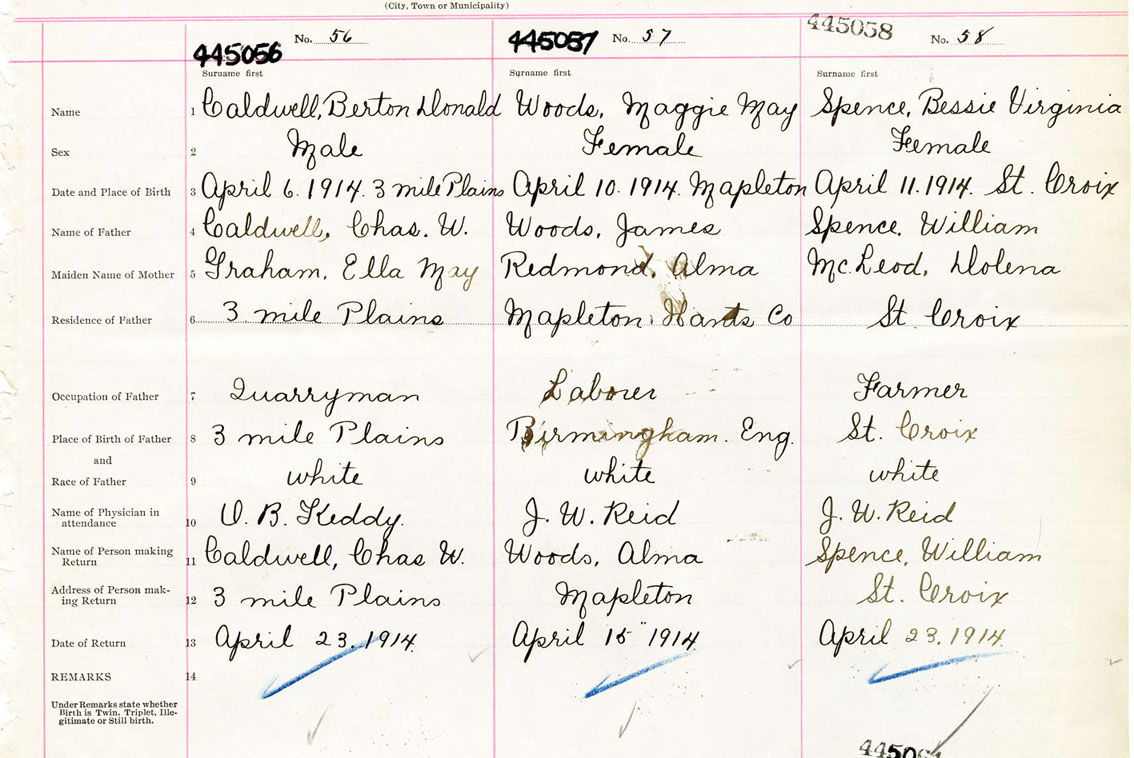 (City, Town or Municipality)
445056 No. 56 445057 No. 57 445058 No. 58
Surname first Surname first Surname first
Name 1 Caldwell, Berton Donald Woods, Maggie May Spence, Bessie Virginia
Sex 2 Male Female Female
Date and Place of Birth 3 April 6. 1914. 3 mile Plains April 10. 1914. Mapleton April 11. 1914. St. Croix
Name of Father 4 Caldwell, Chas. W. Woods, James Spence, William
Maiden Name of Mother 5 Graham, Ella May Redmond, Alma McLeod, Dolena
Residence of Father 6 3 mile Plains Mapleton, Hants Co St Croix
Occupation of Father 7 Quarryman Laborer Farmer
Place of Birth of Father 8 3 mile Plains Birmingham. Eng. St. Croix
and
Race of Father 9 white white white
Name of Physician in
attendance 10 O. B. Keddy. J. W. Reid J. W. Reid
Name of Person making
Return 11 Caldwell, Chas W. Woods, Alma Spence, William
Address of Person mak-
ing Return 12 3 mile Plains Mapleton St. Croix
Date of Return 13 April 23. 1914. April 15" 1914. April 23. 1914.
REMARKS 14
Under Remarks state whether
Birth is Twin, Triplet, Ille-
gitimate or Still birth.